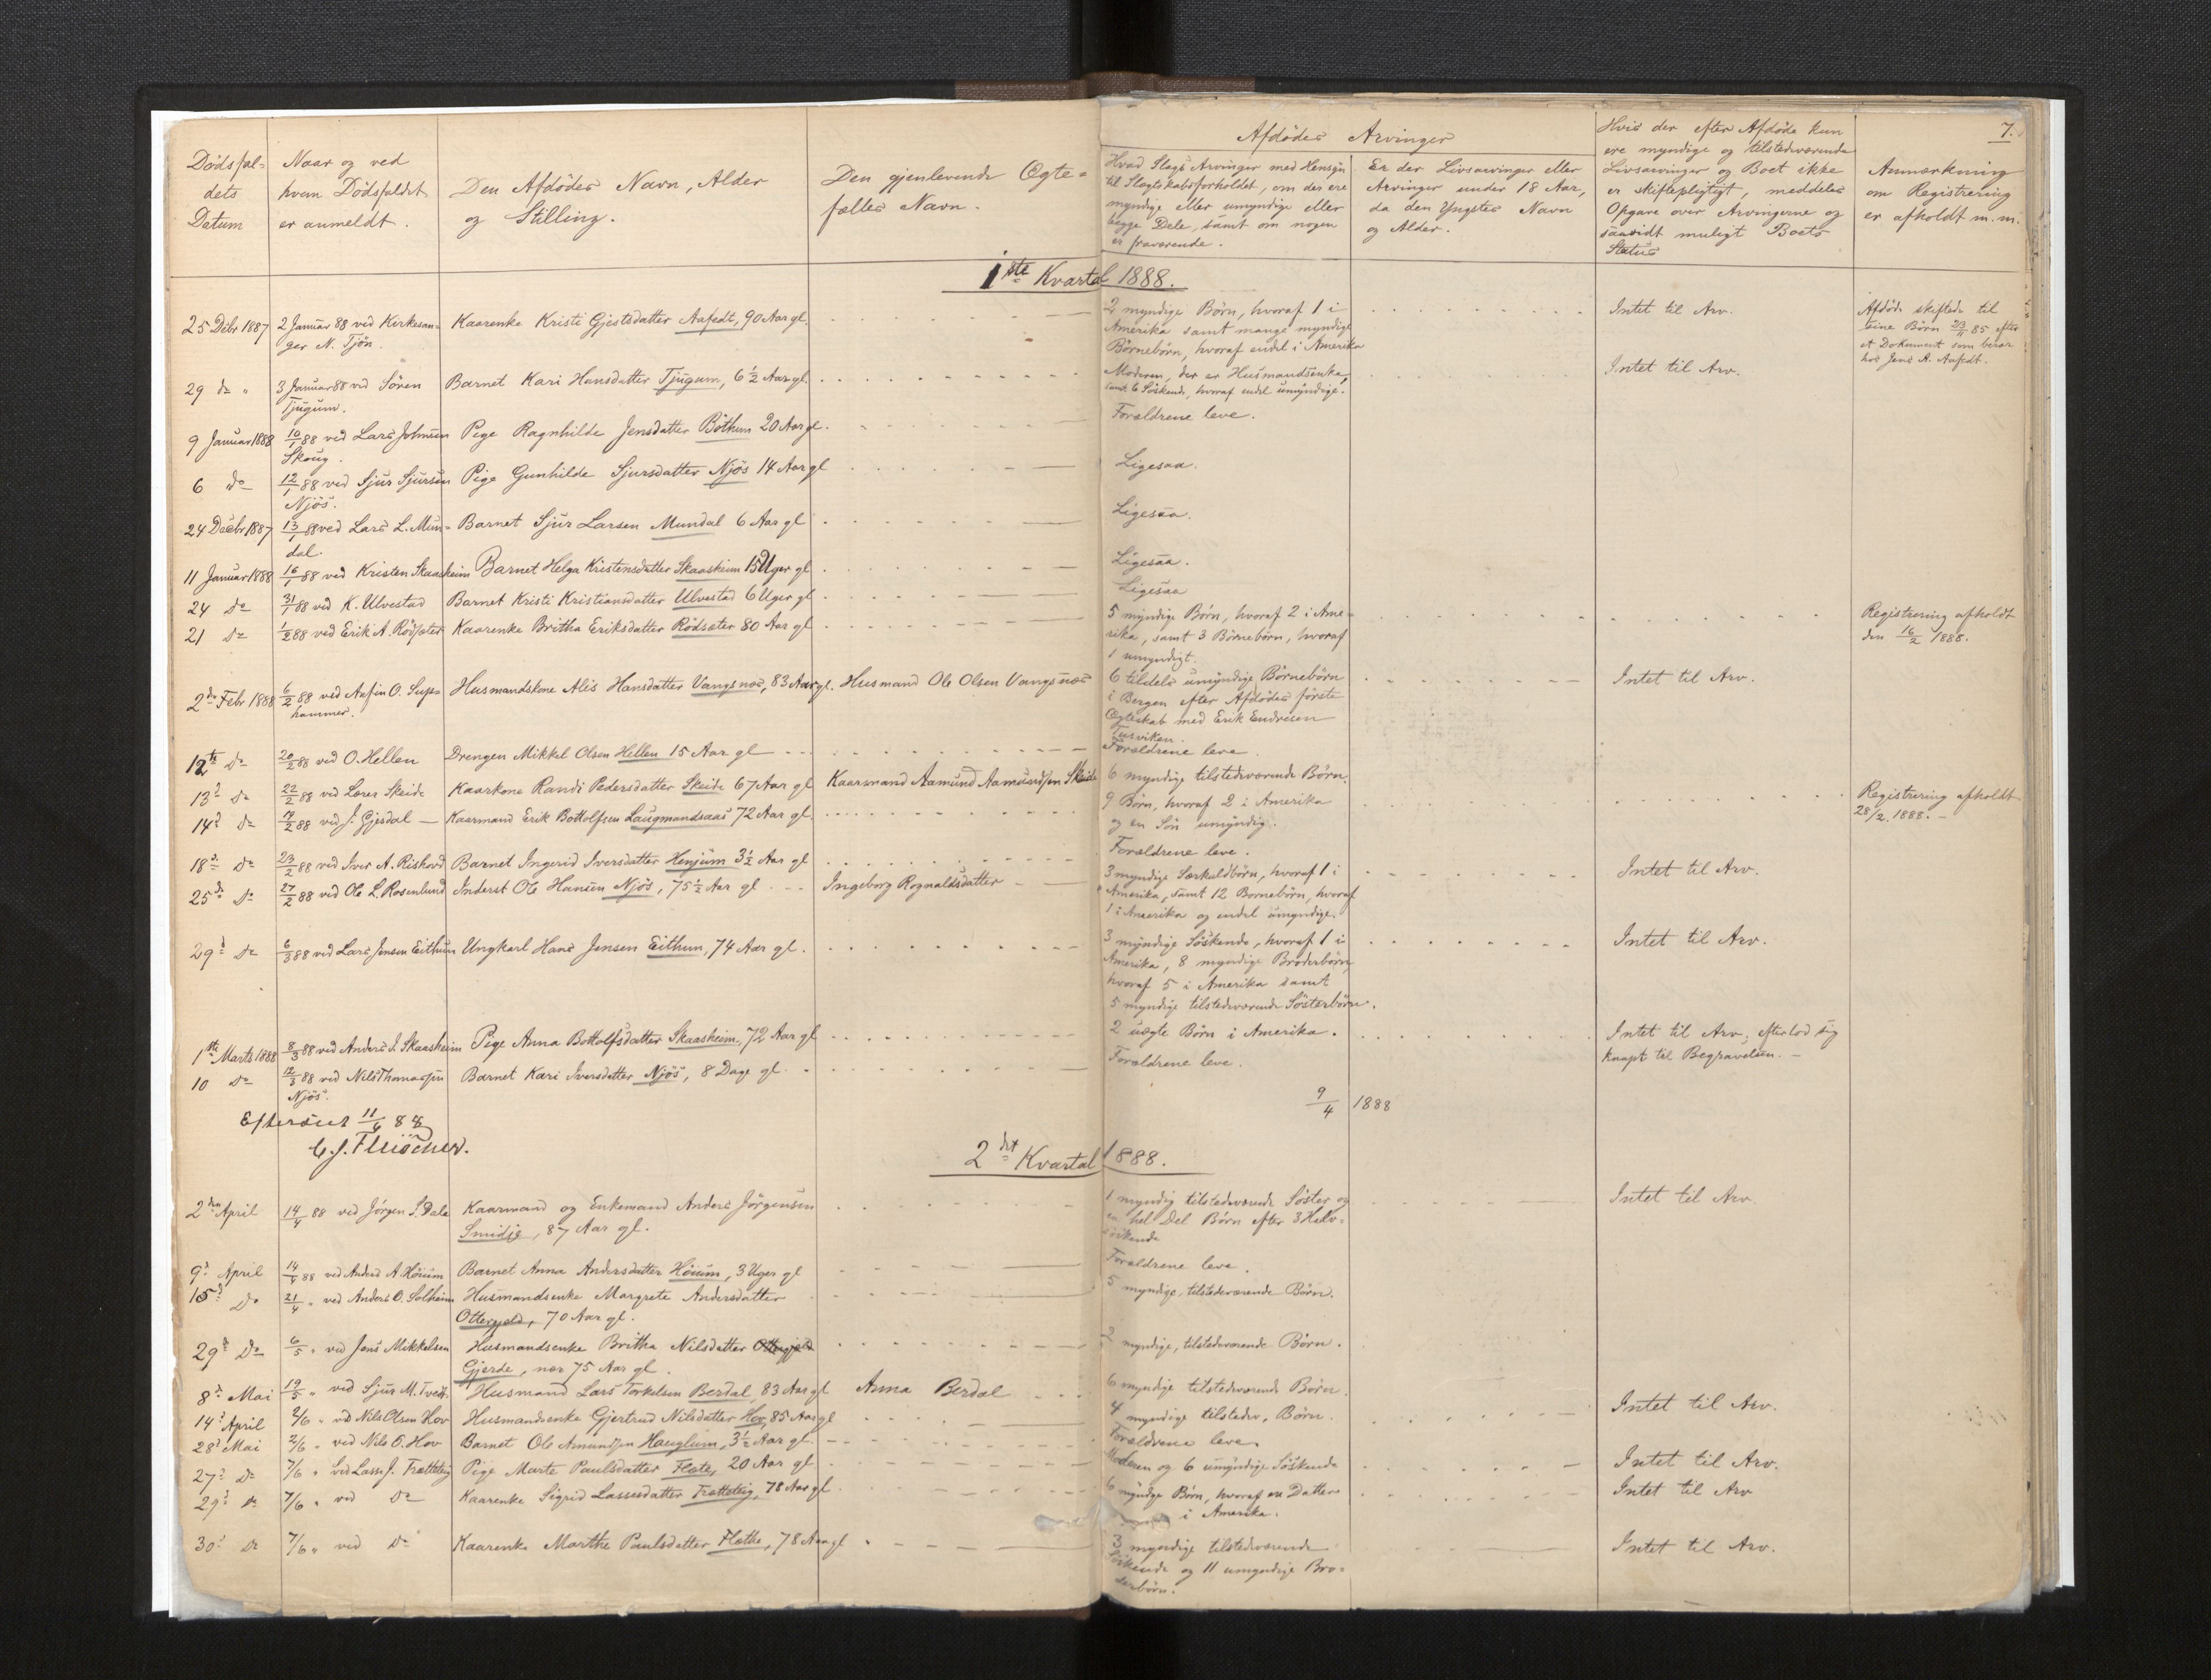 7.
Dødsfal-
dets
Datum
Naar og ved
hvem Dødsfaldet
er anmeldt.
Den Afdødes Navn, Alder
og Stilling.
Den gjenlevende Ægte-
fælles Navn.
Afdødes Arvinger
Hvad Slags Arvinger med Hensyn
til Slagtskabsforholdet, om der ere
myndige eller umyndige eller
begge Dele, samt om nogen
er fraværende.
Er der Livsarvinger eller
Arvinger under 18 Aar,
da den Yngstes Navn
og Alder.
Hvis der efter Afdøde kun
ere myndige og tilstedeværende
Livsarvinger og Boet ikke
er skiftepligtigt, meddeles
Opgave over Arvingerne og
saavidt muligt Boets
Status
Anmærkning
om Registrering
er afholdt m.m.
1ste Kvartal 1888.
25 Debr 1887
2 Januar 88 ved Kirkesan-
ger N. Tjøn.
Kaarenke Kristi Gjestsdatter Aafedt, 90 Aar gl.
2 myndige Børn, hvoraf 1 i
Amerika samt mange myndige
Børnebørn, hvoraf endel i Amerika
Intet til Arv.
Afdøde skiftede til
sine Børn 23/4 85 efter
et Dokument som beror
hos Jens A. Aafedt.
29 do "
3 Januar 88 ved Søren
Tjugum.
Barnet Kari Hansdatter Tjugum, 6 1/2 Aar gl.
Moderen, der er Husmandsenke,
samt 6 Söskende, hvoraf endel umyndige.
Intet til Arv.
9 Januar 1888
10/1 88 ved Lars Johnsen
Skoug.
Pige Ragnhilde Jensdatter Böthum 20 Aar gl.
Forældrene leve.
6 do
12/1 88 ved Sjur Sjursen
Njös.
Pige Gunhilde Sjursdatter Njös 14 Aar gl
Ligesaa.
24 Decbr 1887
13/1 88 ved Lars L. Mun-
dal.
Barnet Sjur Larsen Mundal 6 Aar gl
Ligesaa.
11 Januar 1888
16/1 88 ved Kristen Skaasheim
Barnet Helga Kristensdatter Skaasheim 15 Uger gl
Ligesaa.
24 do
31/1 88 ved K. Ulvestad
Barnet Kristi Kristiansdatter Ulvestad 6 Uger gl
Ligesaa
21 do
1/2 88 ved Erik A. Rödsæter
Kaarenke Britha Eriksdatter Rödsæter 80 Aar gl
5 myndige Børn, hvoraf 2 i Ame-
rika, samt 3 Børnebørn, hvoraf
1 umyndigt.
Registrering afholdt
den 16/2 1888.
2de Febr 1888
6/2 88 ved Aafin O. Supe-
hammer.
Husmandskone Alis Hansdatter Vangsnæs, 83 Aar gl.
Husmand Ole Olsen Vangsnæs
6 tildels umyndige Børnebörn
i Bergen efter Afdødes første
Ægteskab med Erik Endresen
Turviken.
Intet til Arv.
12te do
20/2 88 ved O. Hellen
Drengen Mikkel Olsen Hellen 15 Aar gl
Forældrene leve.
13de do
22/2 88 ved Lærer Skeide
Kaarkone Randi Pedersdatter Skeide 67 Aar gl
Kaarmand Aamund Aamundsen Skeide
6 myndige tilstedeværende Børn.
14de do
/2 88 ved J. Gjesdal
Kaarmand Erik Bottolfsen Laugmandsaas 72 Aar gl.
9 Børn, hvoraf 2 i Amerika
og en Søn umyndig.
Registrering afholdt
28/2. 1888.
18de do
23/2 88 ved Iver A. Riskord
Barnet Ingerid Iversdatter Henjum 3 1/2 Aar gl
Forældrene leve.
25de do
27/2 88 ved Ole L. Rosenlund
Inderst Ole Hansen Njös, 75 1/2 Aar gl
Ingeborg Rognaldsdatter
3 myndige Særkuldbörn, hvoraf 1 i
Amerika, samt 12 Børnebørn, hvoraf
1 i Amerika og endel umyndige.
Intet til Arv.
29de do
6/3 88 ved Lars Jensen Eithun
Ungkarl Hans Jensen Eithun, 74 Aar gl.
3 myndige Söskende, hvoraf 1 i
Amerika, 8 myndige Broderbörn,
hvoraf 5 i Amerika samt
5 myndige tilstedeværende Søsterbørn.
Intet til Arv.
1ste Marts 1888
8/3 88 ved Anders J. Skaasheim
Pige Anna Bottolfsdatter Skaasheim, 72 Aar gl
2 uægte Børn i Amerika.
Intet til Arv; efterlod sig
knapt til Begravelsen.
10 do
12/3 88 ved Nils Thomassen
Njös.
Barnet Kari Iversdatter Njös, 8 Dage gl.
Forældrene leve.
9/4 1888
Efterseet 11/6 88
C. J. Fleischer.
2det Kvartal 1888.
2den April
14/4 88 ved Jørgen J. Dale
Kaarmand og Enkemand Anders Jörgensen
Smidje, 87 Aar gl.
1 myndig tilstedeværende Søster og
en hel Del Børn efter 3 Halv-
söskende
Intet til Arv
9de April
14/4 88 ved Anders A. Höium
Barnet Anna Andersdatter Höium, 3 Uger gl
Forældrene leve.
15de do
21/4 " ved Anders O. Solheim
Husmandsenke Margrete Andersdatter
Ottergjeld, 70 Aar gl.
5 myndige, tilstedeværende Børn.
29de do
6/5 " ved Jens Mikkelsen
Husmandsenke Britha Nilsdatter
Gjerde, nær 75 Aar gl.
2 myndige, tilstedeværende Børn.
8de Mai
19/5 " ved Sjur M. Tvedt.
Husmand Lars Torkelsen Berdal, 83 Aar gl
Anna Berdal
6 myndige tilstedeværende Børn.
14de April
2/6 " ved Nils Olsen Hov
Husmandsenke Gjertrud Nilsdatter Hov, 85 Aar gl
4 myndige tilstedev. Børn.
Intet til Arv.
28de Mai
2/6 " ved Nils O. Hov
Barnet Ole Amundsen Hauglum, 3 1/2 Aar gl.
Forældrene leve.
27de do
7/6 " ved Lasse J. Frætteteig
Pige Marte Paulsdatter Flete, 20 Aar gl
Moderen og 6 umyndige Söskende
Intet til Arv.
29de do
7/6 " ved do
Kaarenke Sigrid Lassesdatter Frætteteig, 78 Aar gl
6 myndige Børn, hvoraf en Datter
i Amerika.
Intet til Arv
30de do
7/6 " ved do
Kaarenke Marthe Paulsdatter Flæthe, 78 Aar gl
3 myndige tilstedeværende
Söskende og 11 umyndige Bro-
derbörn.
Intet til Arv.